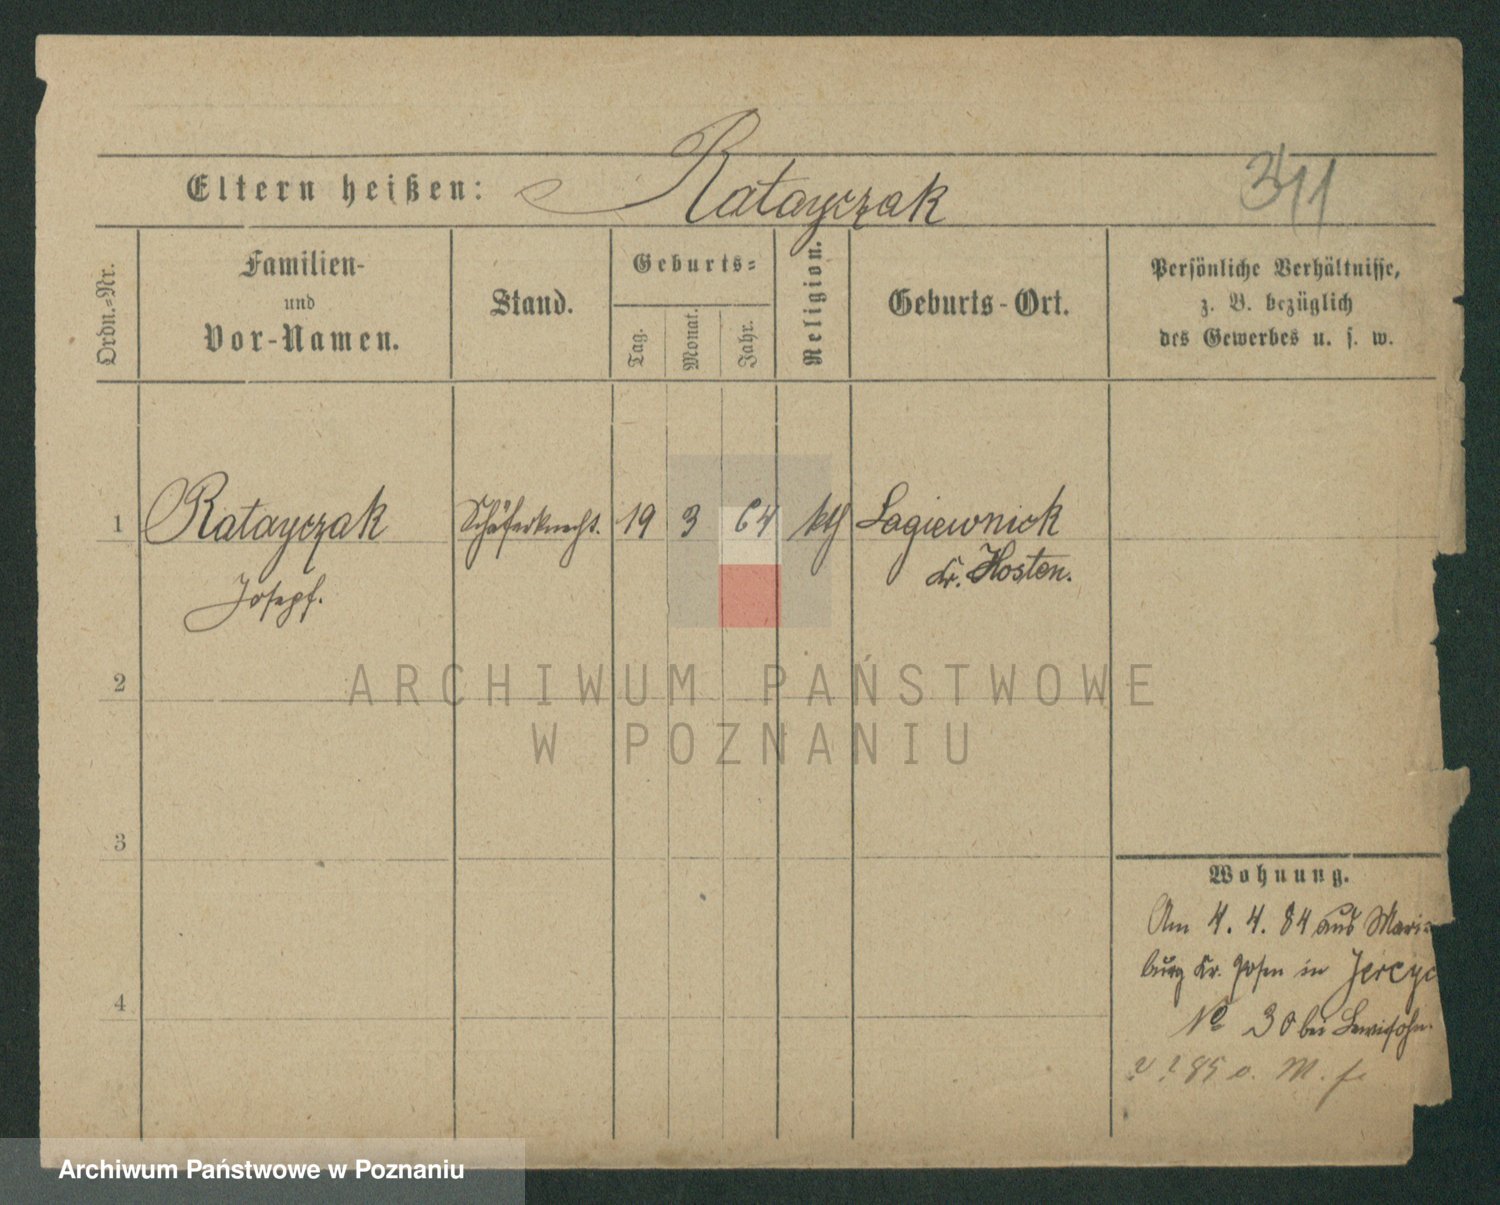 Eltern heißen: Ratayczak
Ordn.-Nr.
Familien-
und
Vor-Namen.
Stand.
Geburts-
Tag.
Monat.
Jahr.
Religion.
Geburts-Ort.
Persönliche Verhältnisse,
z. B. bezüglich
des Gewerbes u. s. w.
1 Ratayczak Schäferknecht. 19 3 64 kth Lagiewnick
Josepf. Kr. Kosten.
2
3
4
Wohnung.
Am 4. 4. 84 aus Marien-
burg Kr. Posen in Jerzyc
No 30 bei Lewisohn.
85 o. M. f.
ARCHIWUM PAŃSTWOWE
W POZNANIU
Archiwum Państwowe w Poznaniu